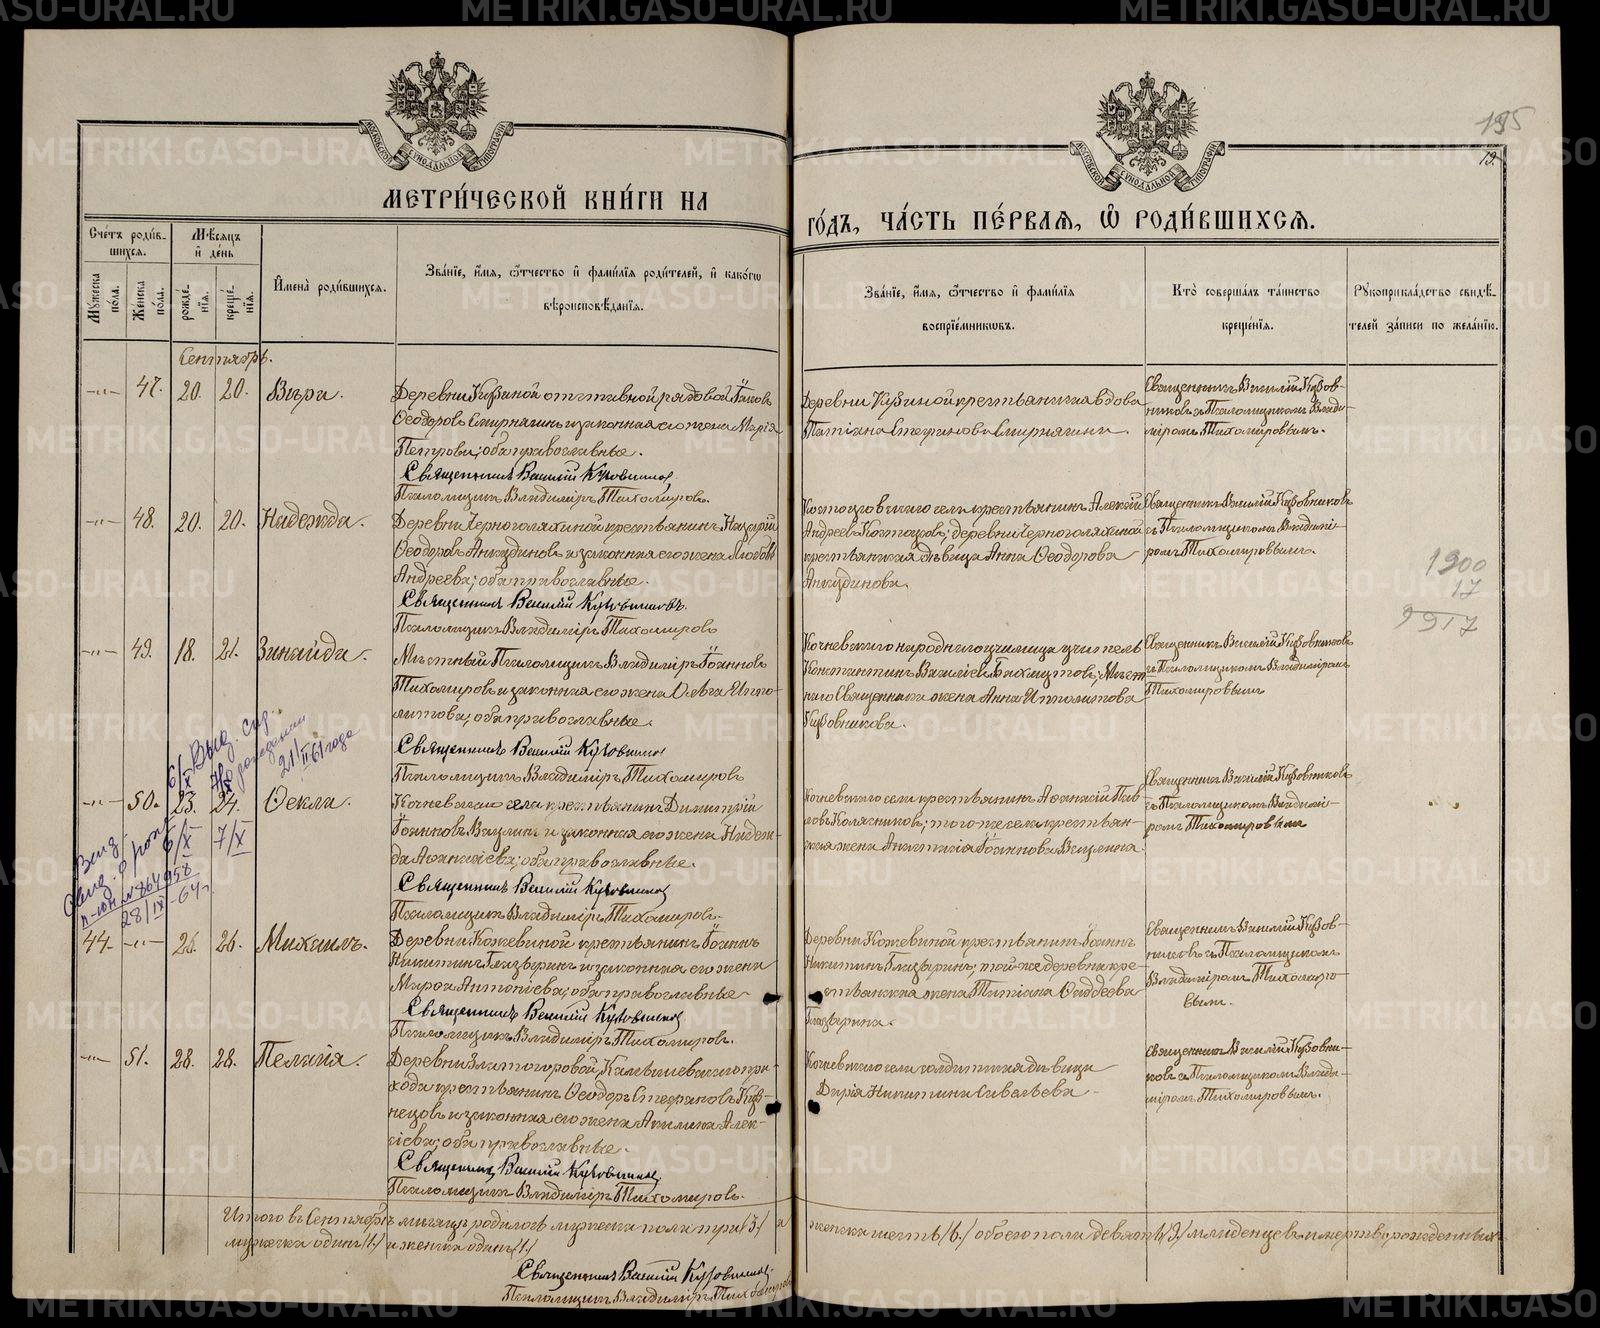 МЕТРИ́ЧЕСКОЙ КНИ́ГИ НА
ГО́ДЪ, ЧА́СТЬ ПЕ́РВАЯ, Ѽ РОДИ́ВШИХСЯ.
195
19.
Сче́тъ роди́в-
шихся.
Мѣ́сяцъ
и҆ де́нь
Му́жеска по́ла.
Же́нска по́ла.
рожде́-
нїя.
креще́-
нїя.
И҆мена̀ роди́вшихся.
Зва́нїе, и҆́мя, ѻ҆́тчество и҆ фами́лїя роди́телей, и҆ како́гѡ
вѣроисповѣ́данїя.
Зва́нїе, и҆́мя, ѻ҆́тчество и҆ фами́лїя
воспрїе́мникѡвъ.
Кто̀ соверша́лъ та́инство
креще́нїя.
Рукоприкла́дство свидѣ́-
телей за́писи по жела́нїю.
Сентябрь.
47. 20. 20. Вѣра.
Деревни Кузиной отставной рядовой Іаковъ
Ѳеодоровъ Смирнягинъ и законная его жена Марія
Петрова; оба православные.
Священникъ Василій Кузовников
Псаломщикъ Владиміръ Тихомировъ.
Деревни Кузиной крестьянская вдова
Татіана Стефанова Смирнягина.
Священникъ Василій Кузов-
никовъ съ Псаломщикомъ Влади-
міромъ Тихомировымъ.
48. 20. 20. Надежда.
Деревни Черноголяхиной крестьянинъ Назарій
Ѳеодоровъ Анкудиновъ и законная его жена Любовь
Андреева; оба православные.
Священникъ Василій Кузовниковъ.
Псаломщикъ Владиміръ Тихомировъ
села крестьянинъ Алексій
Андреевъ деревни Черноголяхиной
крестьянская дѣвица Анна Ѳеодорова
Анкудинова.
Священникъ Василій Кузовниковъ
съ Псаломщикомъ Владимі-
ромъ Тихомировымъ.
1900
17
9917
49. 18. 21. Зинаида.
Мѣстный Псаломщикъ Владиміръ Іоанновъ
Тихомировъ и законная его жена Ольга Иппо-
литова; оба православные.
Священникъ Василій Кузовников
Псаломщикъ Владиміръ Тихомировъ
Кочневскаго народнаго училища учитель
Константинъ Василіевъ Мѣст-
наго Священника жена Анна Ипполитова
Кузовникова.
Священникъ Василій Кузовниковъ
съ Псаломщикомъ Владиміромъ
Тихомировымъ
Выд. свид.
о рождении
21/II 61 года
50. 23. 24. Ѳекла.
6/X 7/X
Кочневскаго села крестьянинъ Димитрій
Іоанновъ и законная его жена Надеж-
да Аѳанасіева; оба православные.
Священникъ Василій Кузовников
Псаломщикъ Владиміръ Тихомировъ.
Кочневскаго села крестьянинъ Аѳанасій Пав-
ловъ Колясниковъ; того же села крестьян-
ская жена Анастасія Іоаннова
Священникъ Василій Кузовниковъ
съ Псаломщикомъ Владимі-
ромъ Тихомировымъ
Выд.
свид. о рожд.
№ 864958
28/IX-64г.
44. 26. 26. Михаилъ.
Деревни Кожевиной крестьянинъ Іоаннъ
Никитинъ Глазыринъ и законная его жена
Антоніева; оба православные
Священникъ Василій Кузовников
Псаломщикъ Владиміръ Тихомировъ.
Деревни Кожевиной крестьянинъ Іоаннъ
Никитинъ Глазыринъ; той же деревни кре-
стьянская жена Татіана Ѳаддеева
Глазырина.
Священникъ Василій Кузов-
никовъ съ Псаломщикомъ
Владиміромъ Тихомиро-
вымъ.
51. 28. 28. Пелагія.
Деревни Златогоровой, Камышевскаго при-
хода крестьянинъ Ѳеодоръ Стефановъ Куз-
нецовъ и законная его жена Акилина Алек-
сіева; оба православные.
Священникъ Василій Кузовников
Псаломщикъ Владиміръ Тихомировъ.
Кочневскаго села солдатская дѣвица
Дарія Никитина Савельева
Священникъ Василій Кузовни-
ковъ съ Псаломщикомъ Влади-
міромъ Тихомировымъ.
Итого въ Сентябрѣ мѣсяцѣ родилось мужеска пола три /3/ а
женска шесть /6/ обоего пола девять /9/ младенцевъ и мертворожденныхъ
мужеска одинъ /1/ и женска одинъ /1/
Священникъ Василій Кузовников.
Псаломщикъ Владиміръ Тихомировъ
METRIKI.GASO-URAL.RU